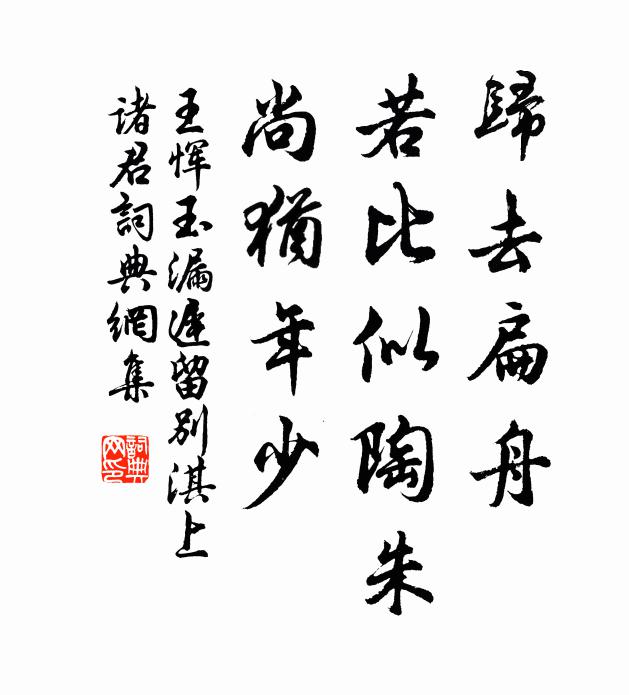 歸去扁舟
若比似陶朱
尚猶年少
王恽玉漏遲留別淇上
诸君詞典網集
詞典
网印